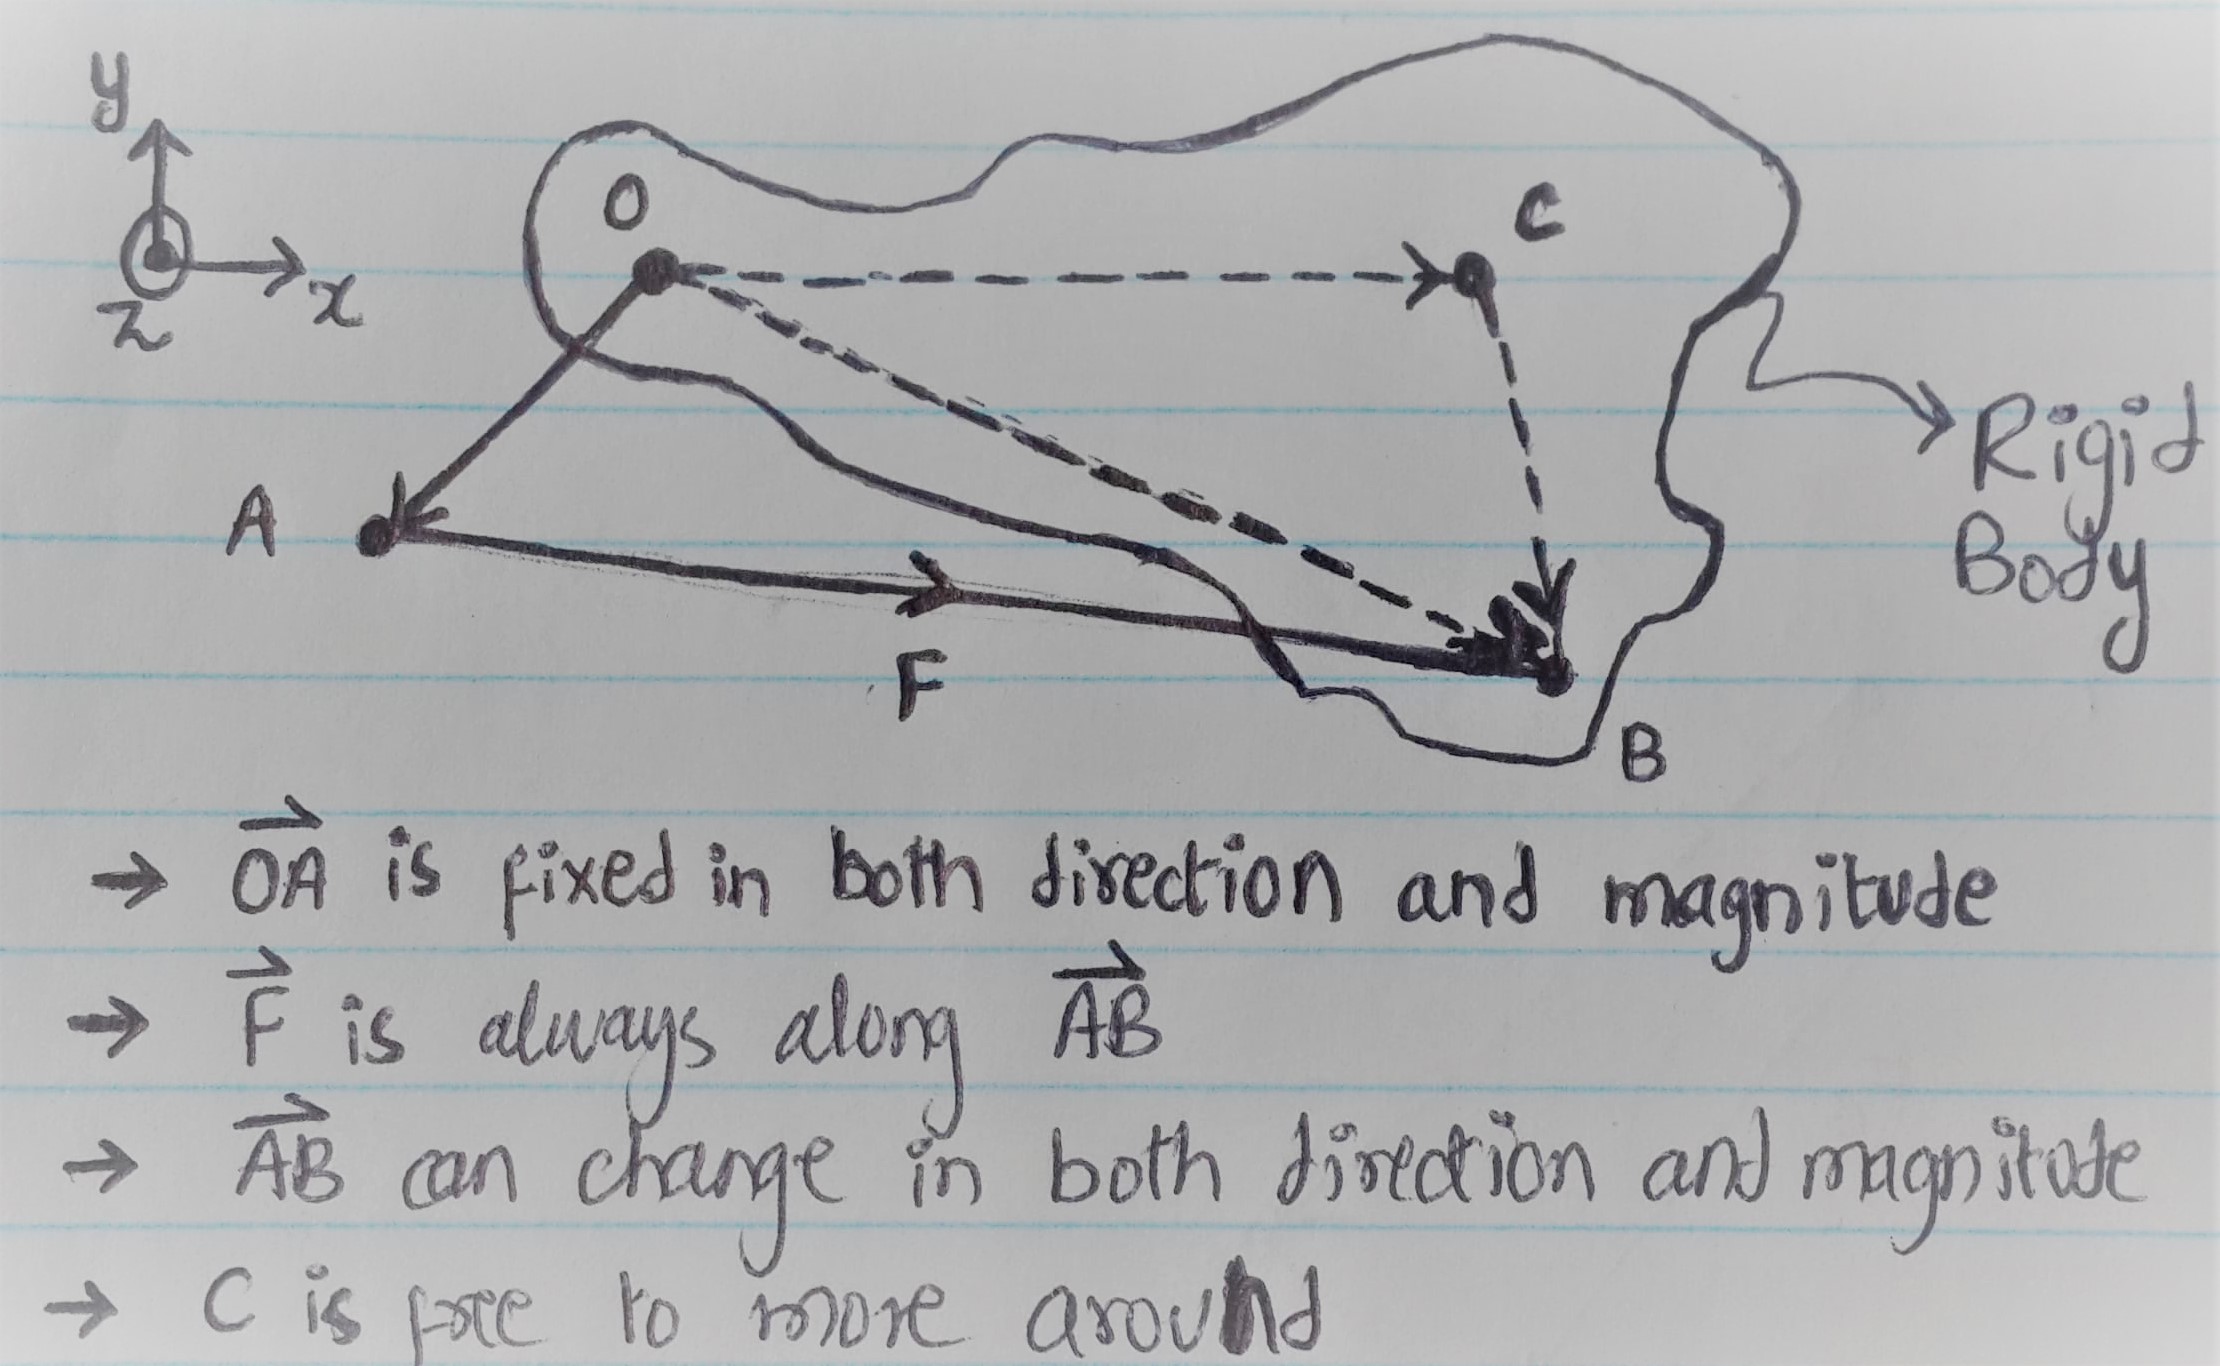 y
O
C
z
x
Rigid
Body
A
F
B
→ OA is fixed in both direction and magnitude
→ F is always along AB
→ AB can change in both direction and magnitude
→ C is free to move around